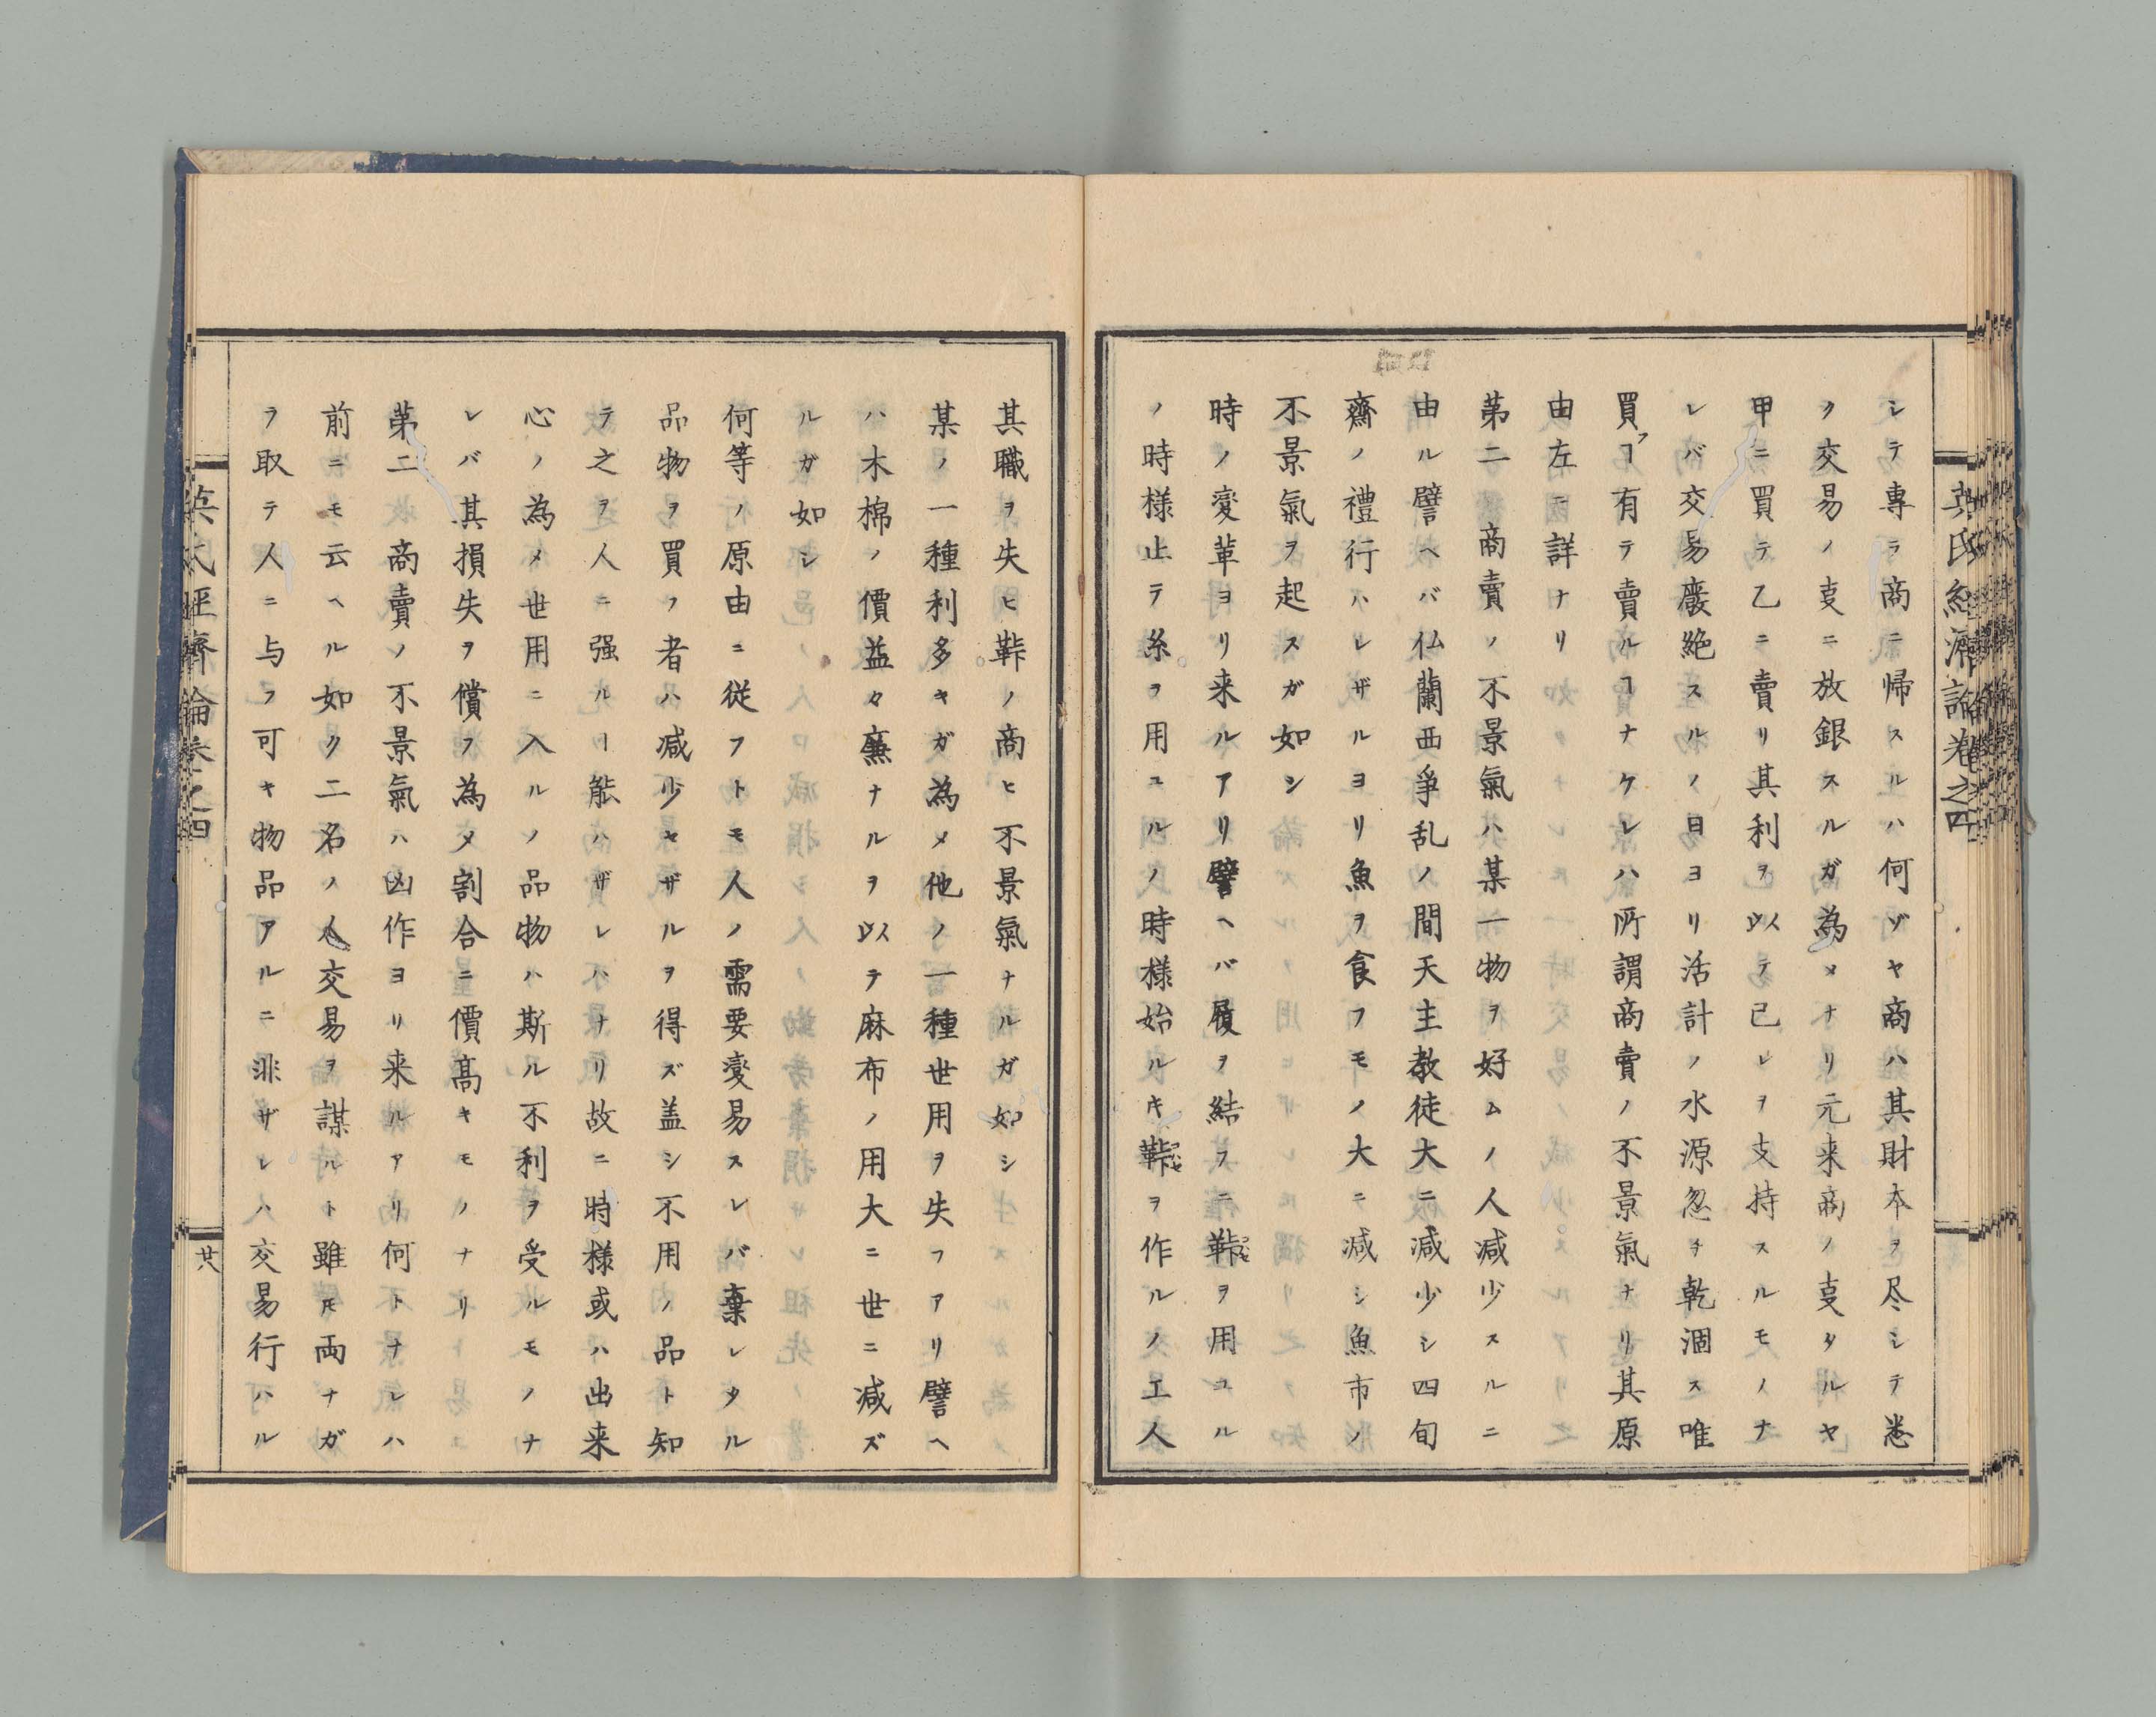 英氏經濟論卷之四
シテ專ラ商ニ帰スルハ何ゾヤ商ハ其財本ヲ尽シテ悉
ク交易ノ叓ニ放銀スルガ為メナリ元来商ノ叓タルヤ
甲ニ買テ乙ニ賣リ其利ヲ以テ已レヲ支持スルモノナ
レバ交易廢絶スルノ日ヨリ活計ノ水源忽チ乾涸ス唯
買フヿ有テ賣ルヿナケレハ所謂商賣ノ不景氣ナリ其原
由左ニ詳ナリ
苐二 商賣ノ不景氣ハ某一物ヲ好ムノ人減少スルニ
由ル譬ヘバ仏蘭西爭乱ノ間天主教徒大ニ減少シ四旬
齋ノ禮行ハレザルヨリ魚ヲ食フモノ大ニ減シ魚市ノ
不景氣ヲ起スガ如シ
時ノ変革ヨリ来ルアリ譬ヘバ履ヲ結フニ鞐ヲ用ユル
ノ時様止テ糸ヲ用ユルノ時様始ルキ鞐ヲ作ルノ工人
其職ヲ失ヒ鞐ノ商ヒ不景氣ナルガ如シ
某ノ一種利多キガ為メ他ノ一種世用ヲ失フアリ譬ヘ
ハ木棉ノ價益々廉ナルヲ以テ麻布ノ用大ニ世ニ減ズ
ルガ如シ
何等ノ原由ニ従フトモ人ノ需要変易スレバ棄レタル
品物ヲ買フ者ハ減少セザルヲ得ズ盖シ不用ノ品ト知
テ之ヲ人ニ强ルー能ハザレハナリ故ニ時様或ハ出来
心ノ為メ世用ニ入ルノ品物ハ斯ル不利ヲ受ルモノナ
レバ其損失ヲ償フ為メ割合ニ價髙キモノナリ
苐二 商賣ノ不景氣ハ凶作ヨリ来ルアリ何トナレハ
前ニモ云ヘル如ク二名ノ人交易ヲ謀ルト雖𪜈両ナガ
ラ取テ人ニ与フ可キ物品アルニ非ザレハ交易行ハル
英氏經濟論卷之四
廿八